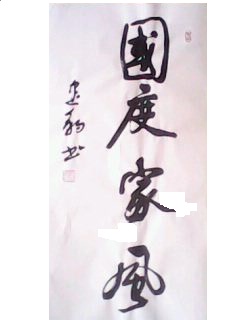 國度家風